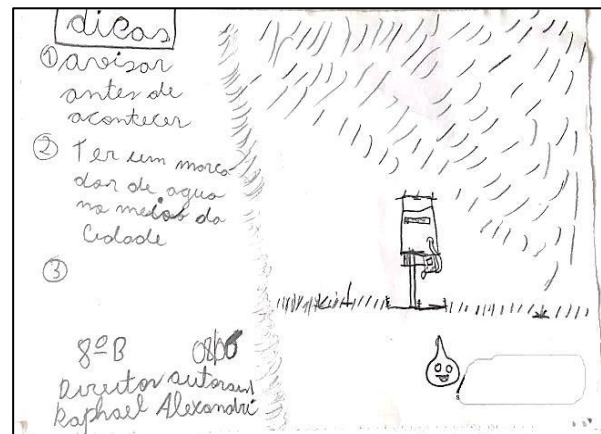 dicas
① avisar
antes de
acontecer
② Ter um marca
dor de agua
no meios da
Cidade
③
8ºB 08/06
Director autoral
Raphael Alexandre